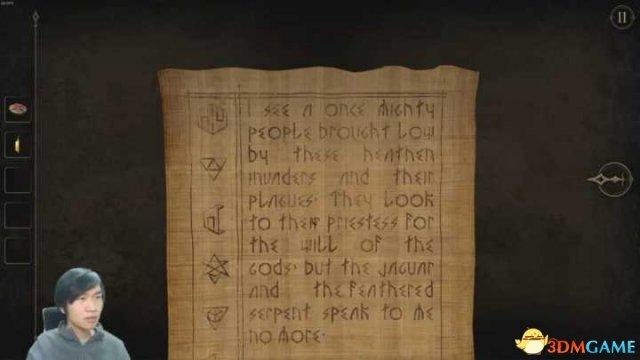 I see a once mighty
people brought low
by these heathen
invaders and their
plagues. They look
to their priestess for
the will of the
gods. but the jaguar
and the feathered
serpent speak to me
no more.
3DMGAME